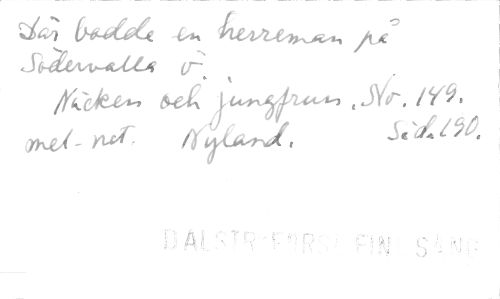 Där bodde en herreman på
Södervalla ö.
Näcken och jungfrun. No. 149.
mel-not. Nyland. Sid. 190.
DALSTR FORS FIN SAND